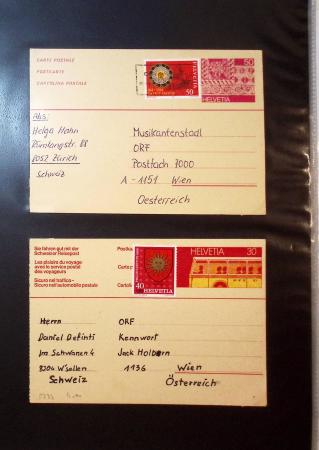 CARTE POSTALE
POSTKARTE
CARTOLINA POSTALE
50
50
HELVETIA
HELVETIA
Abs:
Helga Hahn
8052 Zürich
Schweiz
Musikantenstadl
ORF
Postfach 7000
A - 1151 Wien
Oesterreich
Sie fahren gut mit der
Schweizer Reisepost
Les plaisirs du voyage
avec le service postal
des voyageurs
Sicuro nel traffico -
Sicuro nell'automobile postale
HELVETIA 30
40 HELVETIA
Herrn
Daniel Definti
Im Schwanen 4
8304 W'sellen
Schweiz
ORF
Kennwort
Jack Holborn
1136 Wien
Österreich